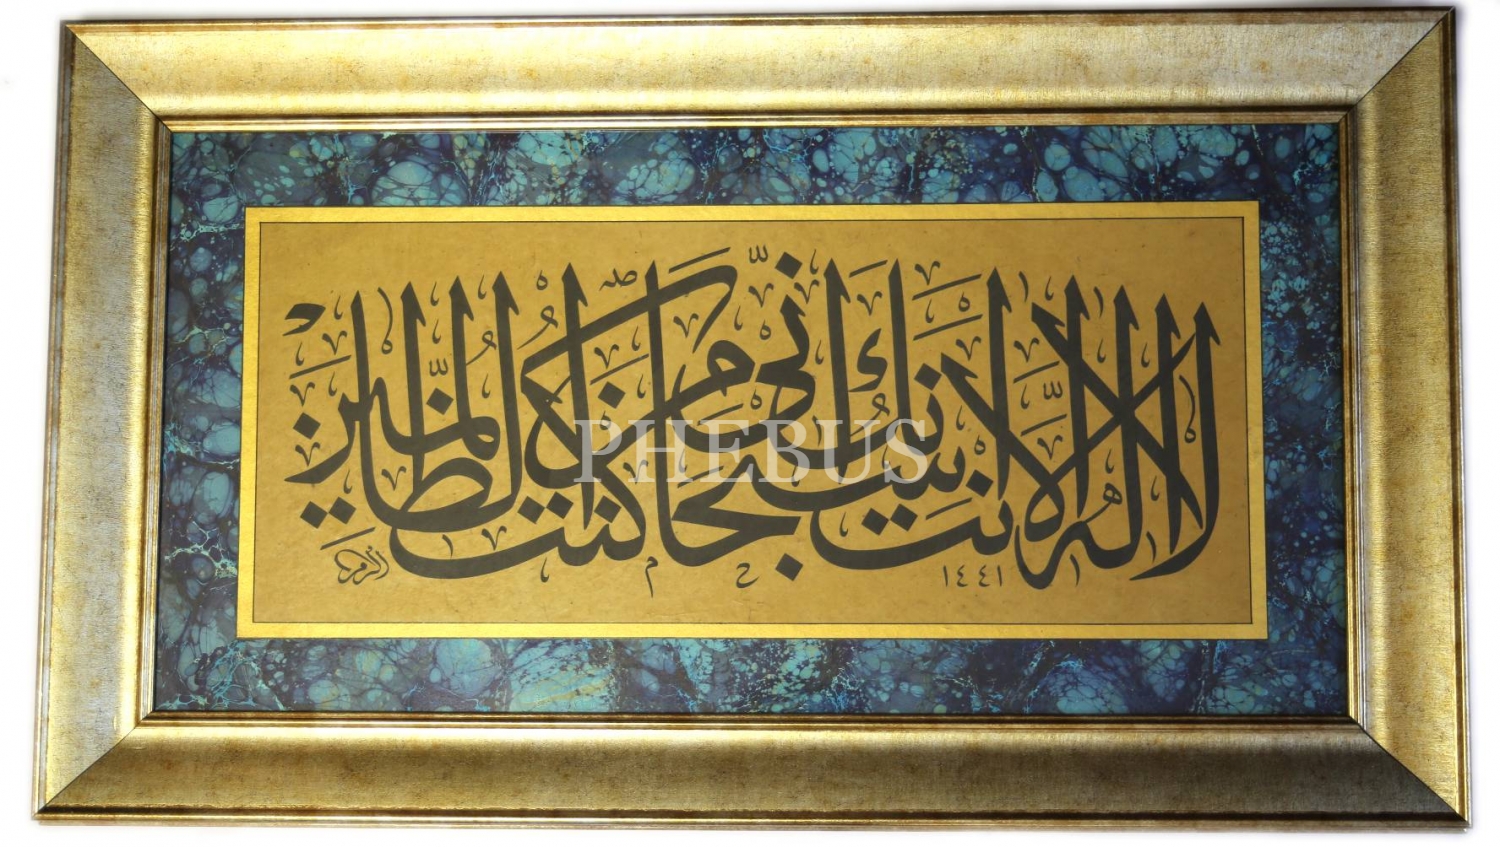 لا إله إلا أنت سبحانك إني كنت من الظالمين
١٤٤١
PHEBUS